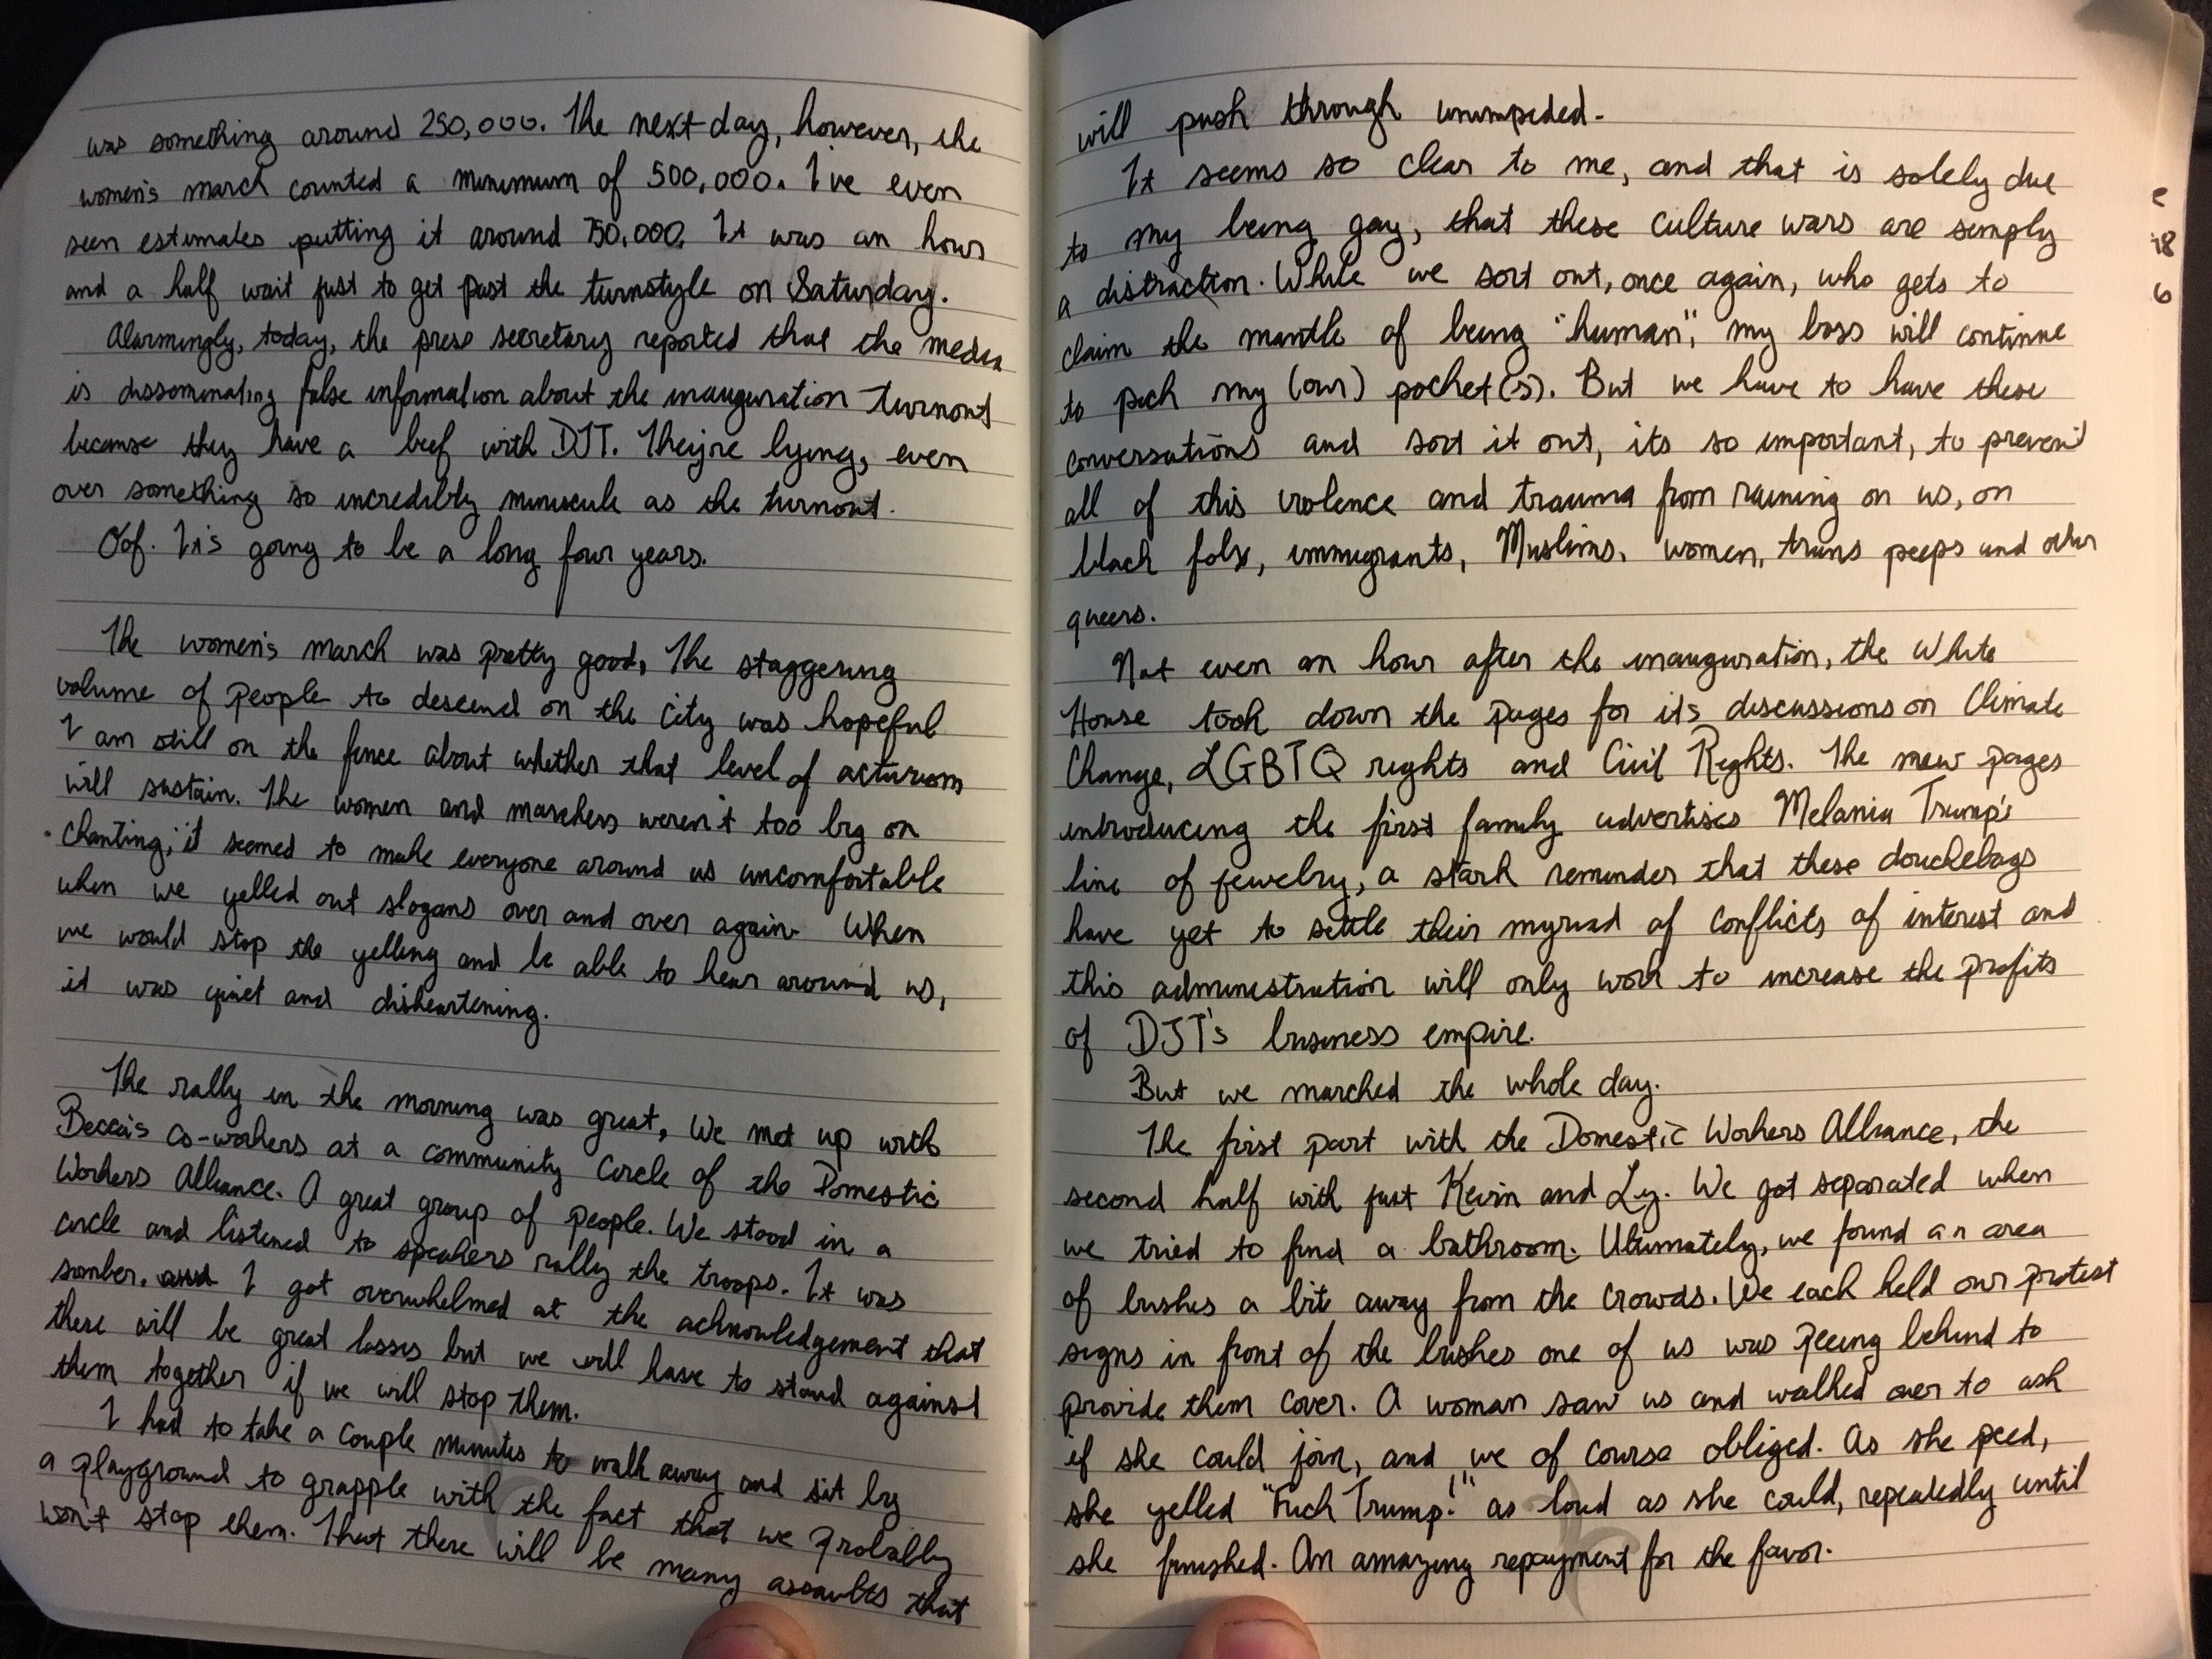 was something around 250,000. The next day, however, the
women's march counted a minimum of 500,000. I've even
seen estimates putting it around 750,000. It was an hour
and a half wait just to get past the turnstyle on Saturday.
Alarmingly, today, the press secretary reported that the media
is dissominating false information about the inauguration turnout
because they have a beef with DJT. They're lying, even
over something so incredibly miniscule as the turnout.
Oof. It's going to be a long four years.
The women's march was pretty good. The staggering
volume of people to descend on the city was hopeful
I am still on the fence about whether that level of activism
will sustain. The women and marchers weren't too big on
chanting; it seemed to make everyone around us uncomfortable
when we yelled out slogans over and over again. When
we would stop the yelling and be able to hear around us,
it was quiet and disheartening.
The rally in the morning was great. We met up with
Becca's co-workers at a community circle of the Domestic
Workers Alliance. A great group of people. We stood in a
circle and listened to speakers rally the troops. It was
somber. and I got overwhelmed at the acknowledgement that
there will be great losses but we will have to stand against
them together if we will stop them.
I had to take a couple minutes to walk away and sit by
a playground to grapple with the fact that we probably
won't stop them. That there will be many assaults that
will push through unimpeded.
It seems so clear to me, and that is solely due
to my being gay, that these culture wars are simply
a distraction. While we sort out, once again, who gets to
claim the mantle of being "human", my boss will continue
to pick my (our) pocket(s). But we have to have these
conversations and sort it out, its so important, to prevent
all of this violence and trauma from raining on us, on
black folx, immigrants, Muslims, women, trans peeps and other
queers.
Not even an hour after the inauguration, the White
House took down the pages for its discussions on Climate
Change, LGBTQ rights and Civil Rights. The new pages
introducing the first family advertises Melania Trump's
line of jewelry, a stark reminder that these douchebags
have yet to settle their myriad of conflicts of interest and
this administration will only work to increase the profits
of DJT's business empire.
But we marched the whole day.
The first part with the Domestic Workers Alliance, the
second half with just Kevin and Ly. We got separated when
we tried to find a bathroom. Ultimately, we found an area
of bushes a bit away from the crowds. We each held our protest
signs in front of the bushes one of us was peeing behind to
provide them cover. A woman saw us and walked over to ask
if she could join, and we of course obliged. As she peed,
she yelled "Fuck Trump!" as loud as she could, repeatedly until
she finished. An amazing repayment for the favor.